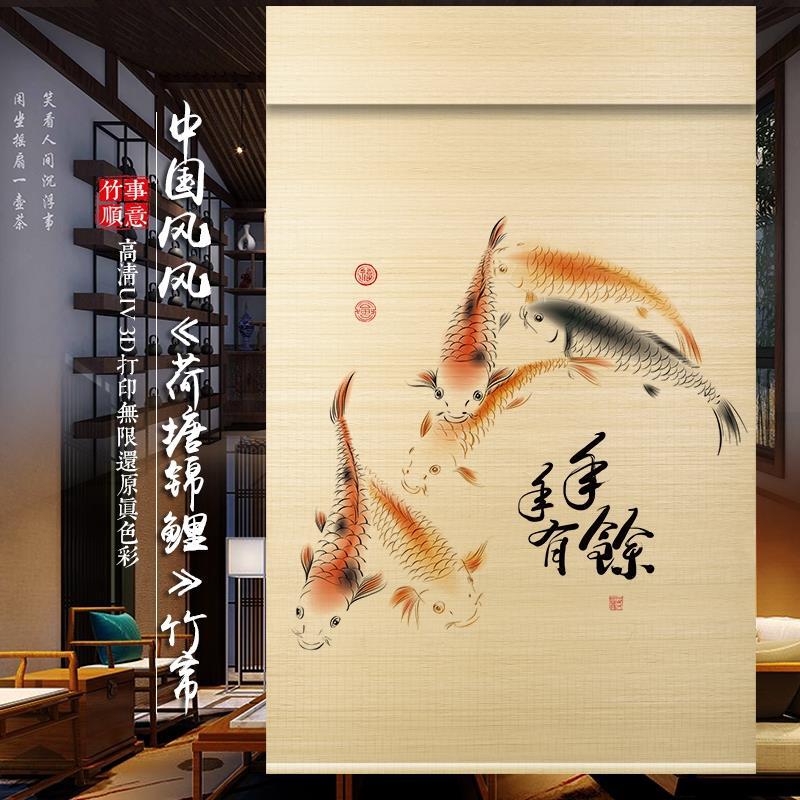 笑看人间沉浮事
闲坐摇扇一壶茶
竹事
順意
中国风风《荷塘锦鲤》竹帘
高清UV 3D打印無限還原眞色彩
年年有餘